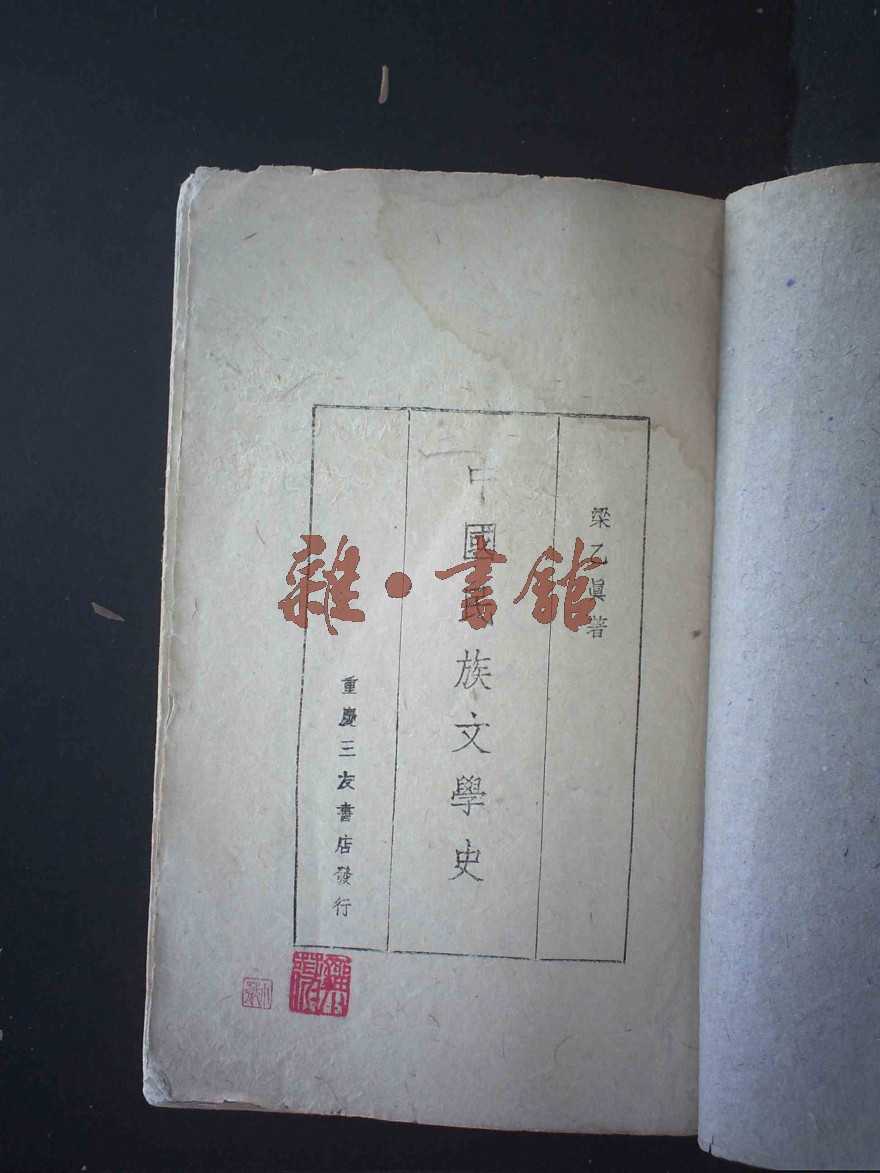 梁乙眞著
中國民族文學史
重慶三友書店發行
雜·書館